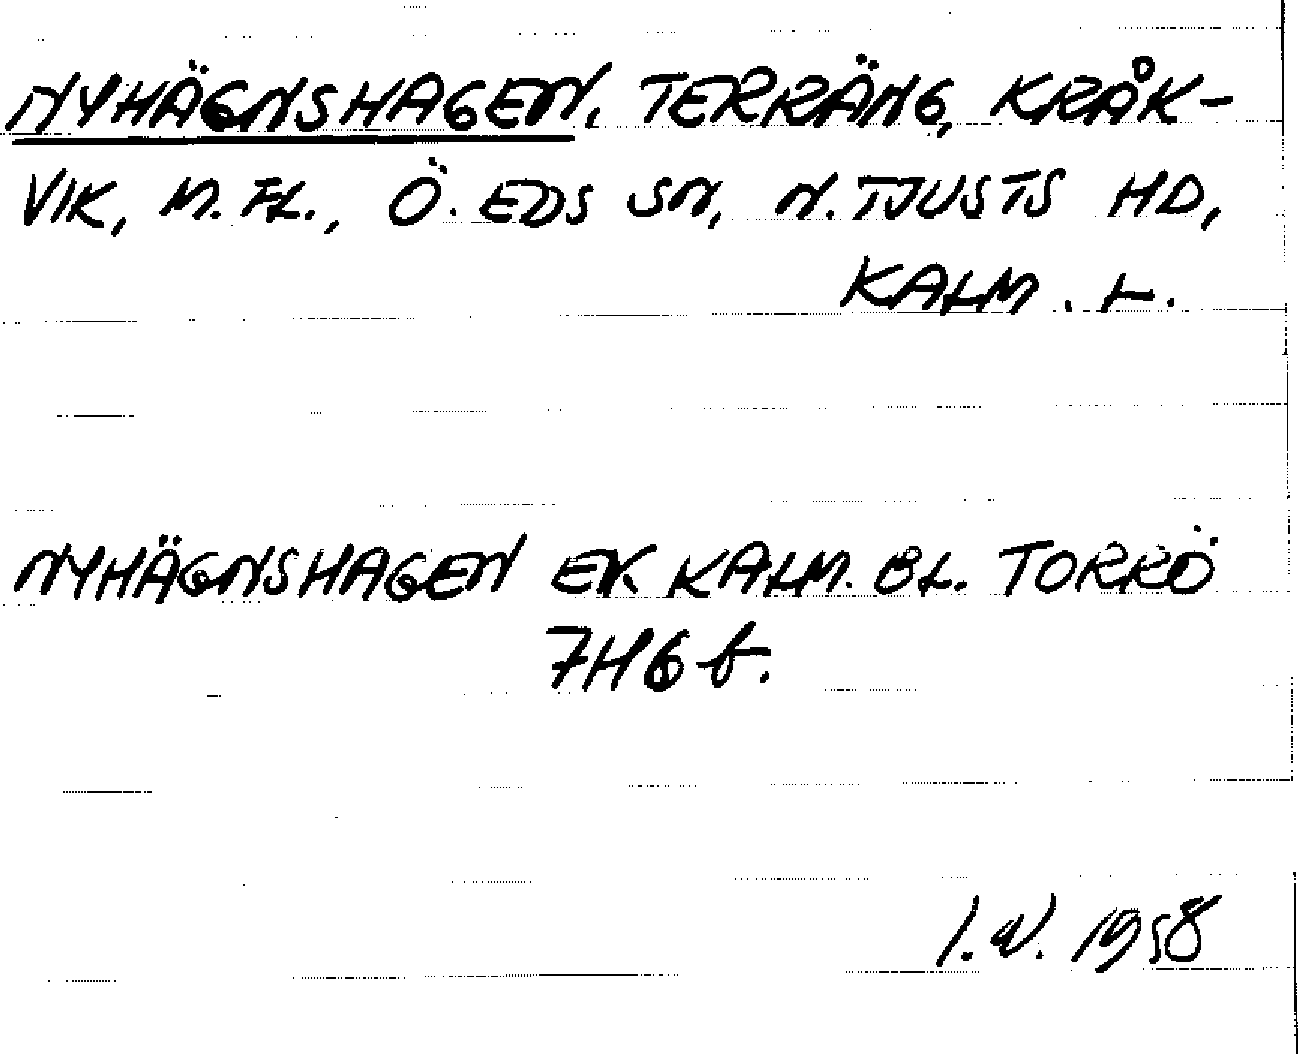 NYHÄGNSHAGEN, TERRÄNG, KRÅK-
VIK, M. FL., Ö. EDS SN, N. TJUSTS HD,
KALM. L.
NYHÄGNSHAGEN EK KALM. BL. TORRÖ
7H6f.
I.W. 1958